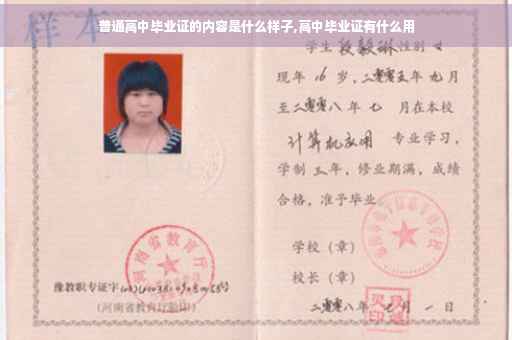 普通高中毕业证的内容是什么样子,高中毕业证有什么用
样本
学生 段毅琳 性别 女
现年 16 岁，二零零五年 九 月
至二零零八 年 七 月在本校
计算机应用 专业学习，
学制 三 年，修业期满，成绩
合格，准予毕业
学校（章）
校长（章）
二零零八年 月 一 日
河南省教育厅
豫教职专证字
(河南省教育厅验印)